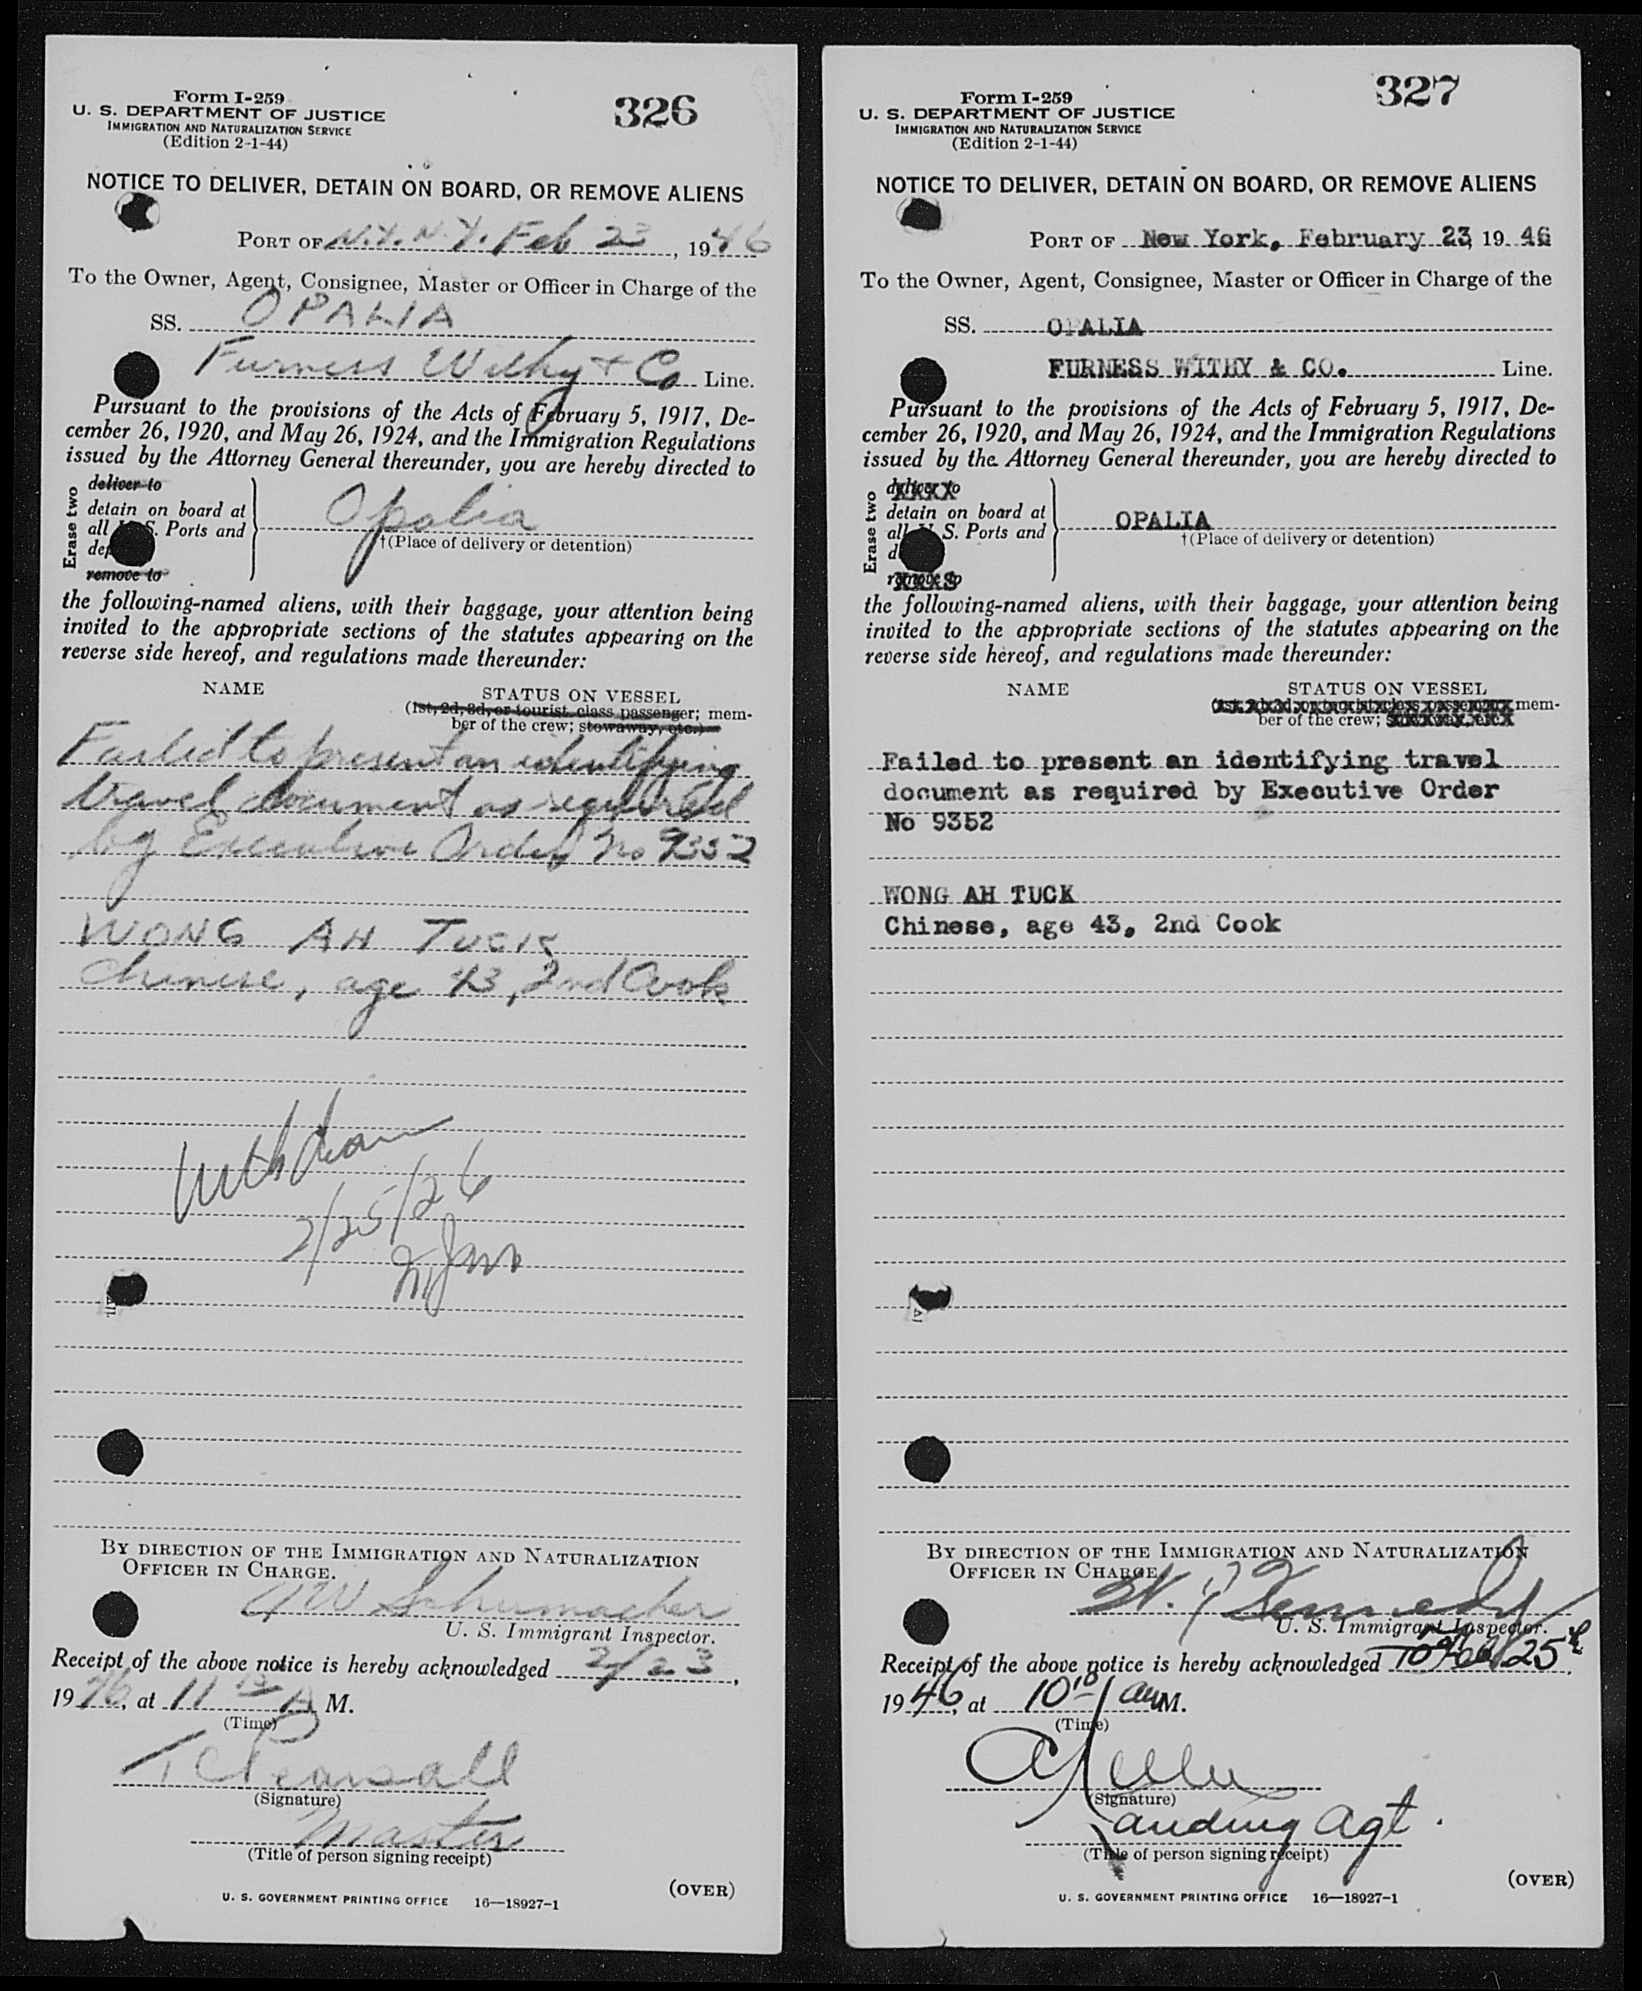 Form I-259
U. S. DEPARTMENT OF JUSTICE
IMMIGRATION AND NATURALIZATION SERVICE
(Edition 2-1-44)
326
NOTICE TO DELIVER, DETAIN ON BOARD, OR REMOVE ALIENS
PORT OF N.Y. N.Y. Feb 23, 1946
To the Owner, Agent, Consignee, Master or Officer in Charge of the
SS. OPALIA
Furness Withy & Co Line.
Pursuant to the provisions of the Acts of February 5, 1917, De-
cember 26, 1920, and May 26, 1924, and the Immigration Regulations
issued by the Attorney General thereunder, you are hereby directed to
Erase two
deliver to
detain on board at
all U. S. Ports and
remove to
Opalia
†(Place of delivery or detention)
the following-named aliens, with their baggage, your attention being
invited to the appropriate sections of the statutes appearing on the
reverse side hereof, and regulations made thereunder:
NAME
STATUS ON VESSEL
(1st, 2d, 3d, or tourist class passenger; mem-
ber of the crew; stowaway, etc.)
Failed to present an identifying
travel document as required
by Executive Order No 9352
WONG AH TUCK
Chinese, age 43, 2nd Cook
Withdrawn
2/25/26
BY DIRECTION OF THE IMMIGRATION AND NATURALIZATION
OFFICER IN CHARGE.
Schumacher
U. S. Immigrant Inspector.
Receipt of the above notice is hereby acknowledged 2/23,
1946, at 11 A M.
(Time)
T C Pearsall
(Signature)
Master
(Title of person signing receipt)
(OVER)
U. S. GOVERNMENT PRINTING OFFICE 16—18927-1
Form I-259
U. S. DEPARTMENT OF JUSTICE
IMMIGRATION AND NATURALIZATION SERVICE
(Edition 2-1-44)
327
NOTICE TO DELIVER, DETAIN ON BOARD, OR REMOVE ALIENS
PORT OF New York, February 23, 19 46
To the Owner, Agent, Consignee, Master or Officer in Charge of the
SS. OPALIA
FURNESS WITHY & CO. Line.
Pursuant to the provisions of the Acts of February 5, 1917, De-
cember 26, 1920, and May 26, 1924, and the Immigration Regulations
issued by the Attorney General thereunder, you are hereby directed to
Erase two
deliver to
detain on board at
all U. S. Ports and
remove to
OPALIA
†(Place of delivery or detention)
the following-named aliens, with their baggage, your attention being
invited to the appropriate sections of the statutes appearing on the
reverse side hereof, and regulations made thereunder:
NAME
STATUS ON VESSEL
(1st, 2d, 3d, or tourist class passenger; mem-
ber of the crew; stowaway, etc.)
Failed to present an identifying travel
document as required by Executive Order
No 9352
WONG AH TUCK
Chinese, age 43, 2nd Cook
BY DIRECTION OF THE IMMIGRATION AND NATURALIZATION
OFFICER IN CHARGE.
Kennedy
U. S. Immigrant Inspector.
Receipt of the above notice is hereby acknowledged Feb 25th,
1946, at 10 10 am M.
(Time)
(Signature)
Landing Agt.
(Title of person signing receipt)
(OVER)
U. S. GOVERNMENT PRINTING OFFICE 16—18927-1